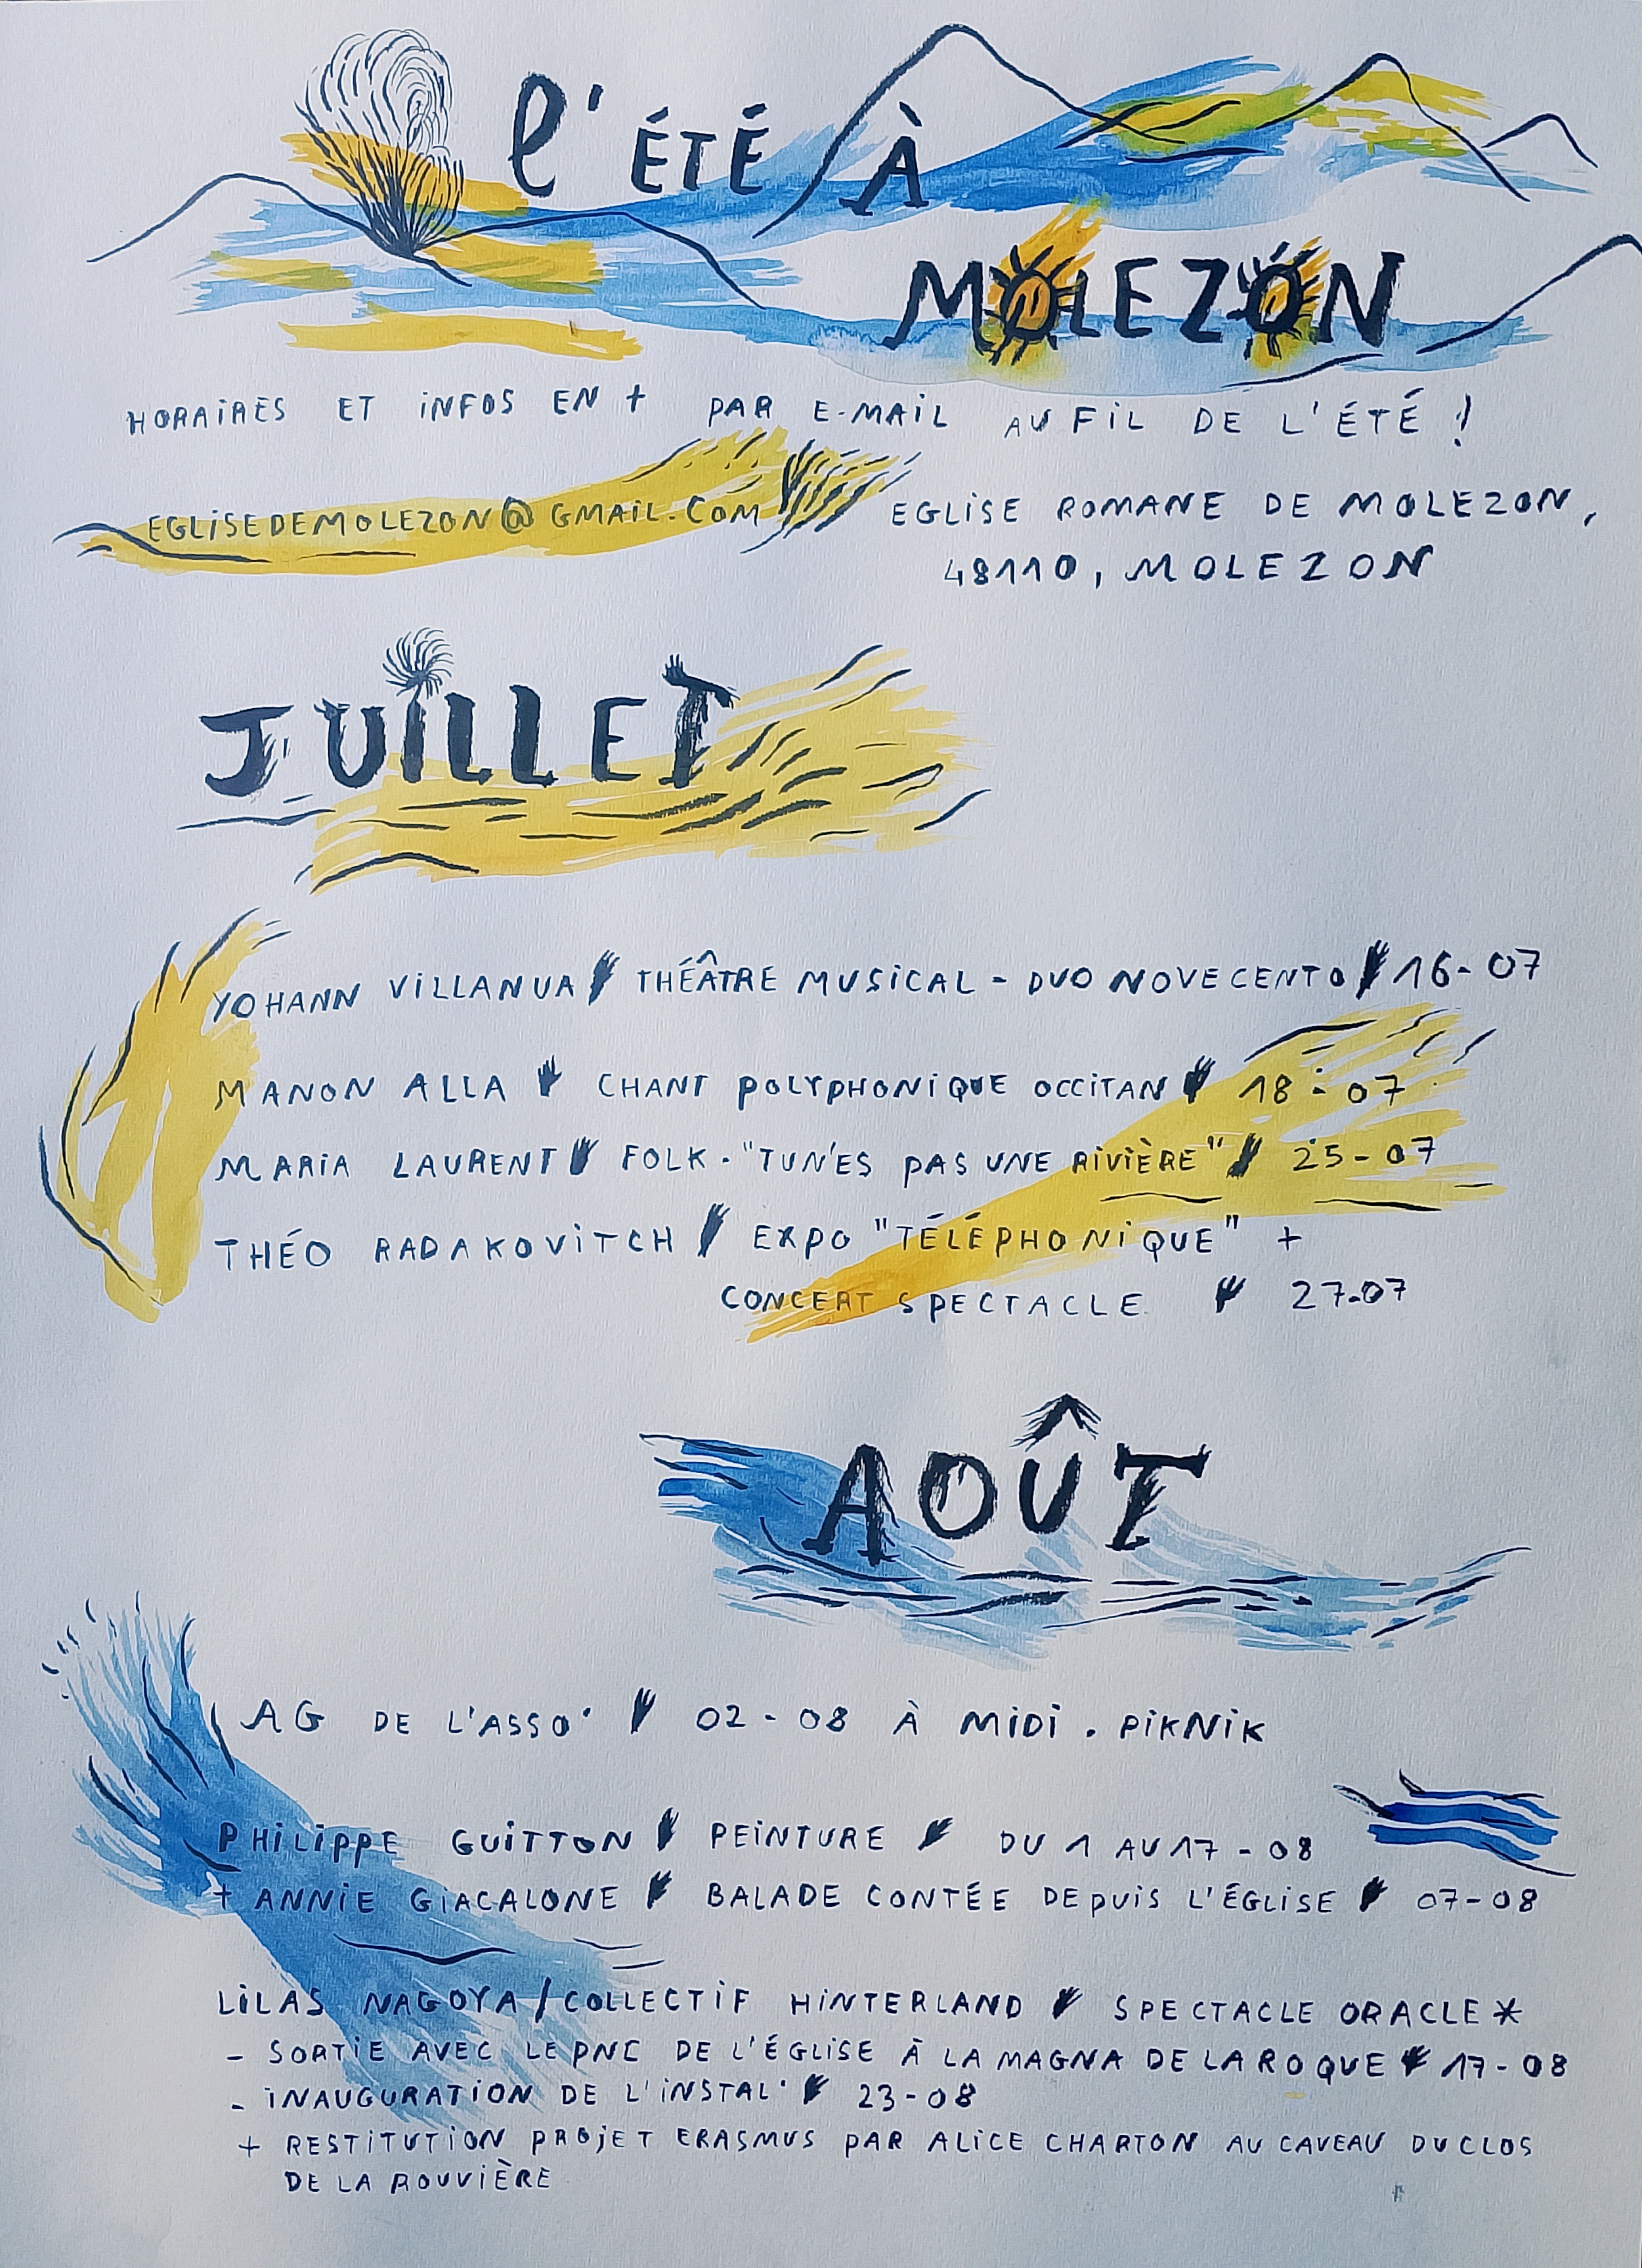 l'ÉTÉ À
MOLEZON
HORAIRES ET INFOS EN + PAR E-MAIL AU FIL DE L'ÉTÉ !
EGLISEDEMOLEZON@GMAIL.COM
EGLISE ROMANE DE MOLEZON,
48110, MOLEZON
JUILLET
YOHANN VILLANUA THÉÂTRE MUSICAL - DUO NOVECENTO 16-07
MANON ALLA CHANT POLYPHONIQUE OCCITAN 18-07
MARIA LAURENT FOLK - "TU N'ES PAS UNE RIVIÈRE" 25-07
THÉO RADAKOVITCH EXPO "TÉLÉPHONIQUE" +
CONCERT SPECTACLE 27-07
AOÛT
AG DE L'ASSO' 02-08 À MIDI . PIKNIK
PHILIPPE GUITTON PEINTURE DU 1 AU 17-08
+ ANNIE GIACALONE BALADE CONTÉE DEPUIS L'ÉGLISE 07-08
LILAS NAGOYA / COLLECTIF HINTERLAND SPECTACLE ORACLE *
- SORTIE AVEC LE PNC DE L'ÉGLISE À LA MAGNA DE LA ROQUE 17-08
- INAUGURATION DE L'INSTAL' 23-08
+ RESTITUTION PROJET ERASMUS PAR ALICE CHARTON AU CAVEAU DU CLOS
DE LA ROUVIÈRE